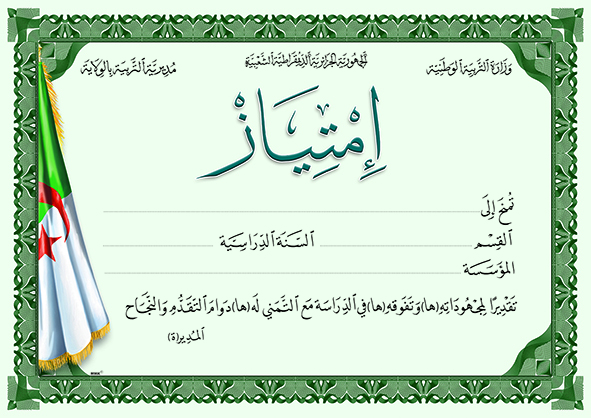 الجمهورية الجزائرية الديمقراطية الشعبية
وزارة التربية الوطنية
مديرية التربية بالولاية
إِمْتِيَازْ
تُمْنَحُ إِلَى
القِسْم السَّنَةُ الدِّرَاسِيَّة
المُؤَسَّسَة
تَقْدِيرًا لِمَجْهُودَاتِهِ(ها) وَتَفَوُّقِهِ(ها) فِي الدِّرَاسَةِ مَعَ التَّمَنِّي لَهُ(ها) دَوَامَ التَّقَدُّمِ وَالنَّجَاحِ
المُدِير(ة)